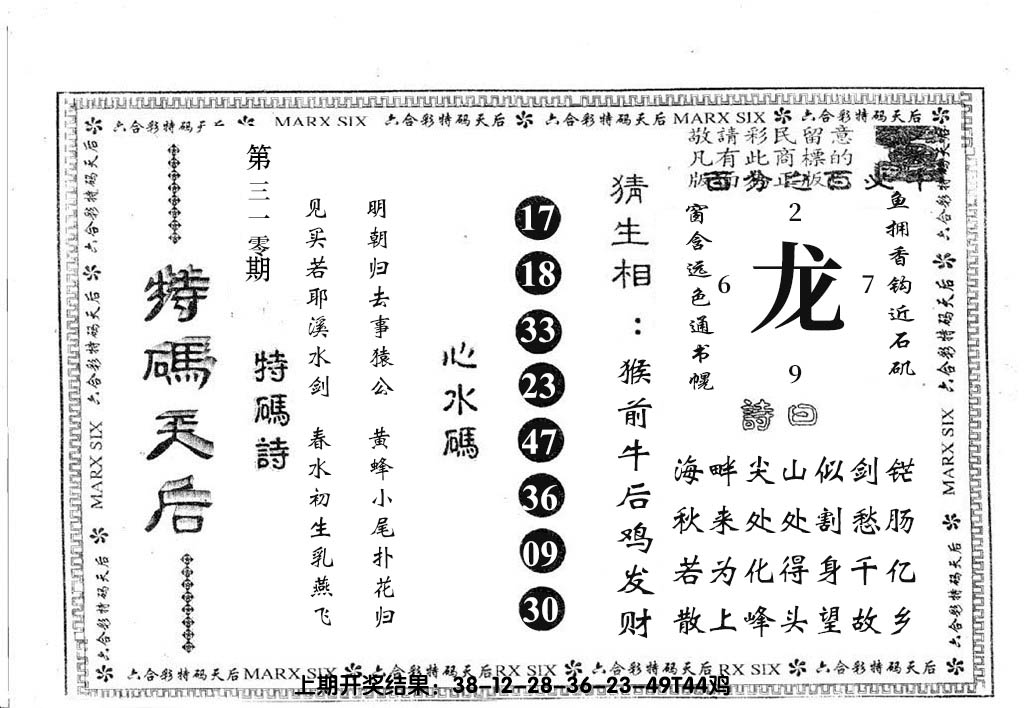 六合彩特码天后 MARX SIX 六合彩特码天后 六合彩特码天后 MARX SIX 六合彩特码天后
敬請彩民留意
凡有此商標的
版面为正版
鱼拥香钩近石矶
2
6 龙 7
9
窗含远色通书幌
詩曰
海畔尖山似剑铓
秋来处处割愁肠
若为化得身千亿
散上峰头望故乡
猜生相:猴前牛后鸡发财
心水碼
17
18
33
23
47
36
09
30
特碼詩
明朝归去事猿公 黄蜂小尾扑花归
见买若耶溪水剑 春水初生乳燕飞
第三一零期
特碼天后
六合彩特码天后 MARX SIX 六合彩特码天后
六合彩特码天后 MARX SIX 六合彩特码天后
六合彩特码天后 MARX SIX 六合彩特码天后 RX SIX 六合彩特码天后 RX SIX 六合彩特码天后
上期开奖结果：38-12-28-36-23-49T44鸡